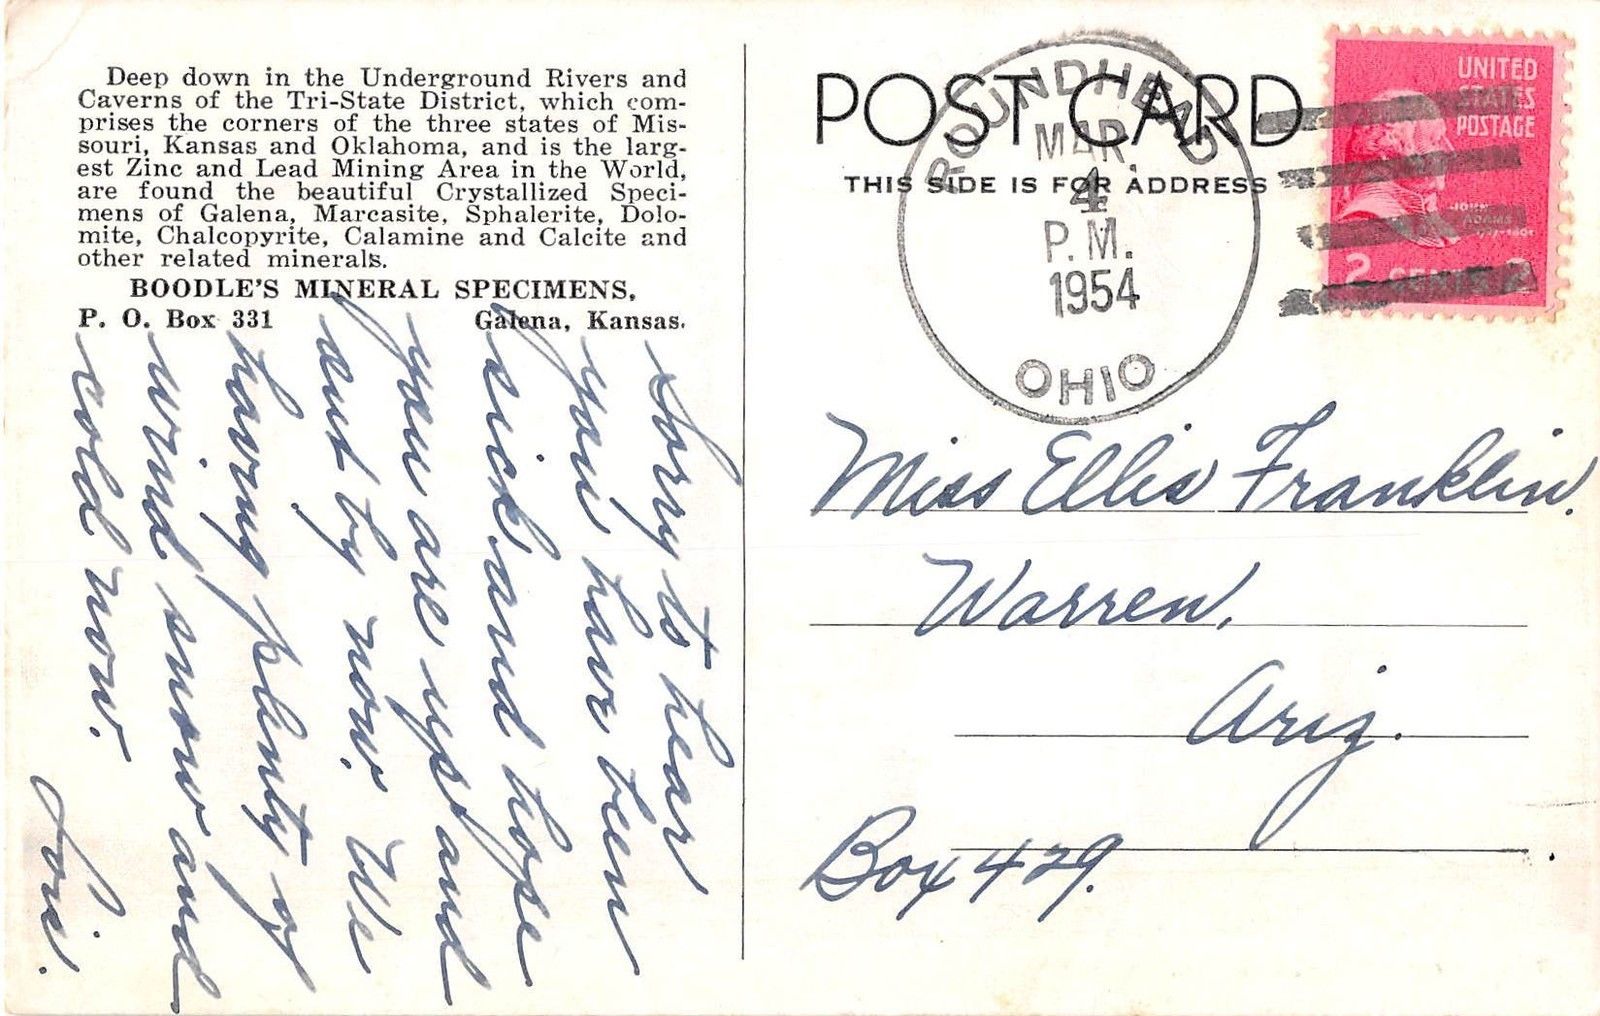 Deep down in the Underground Rivers and
Caverns of the Tri-State District, which com-
prises the corners of the three states of Mis-
souri, Kansas and Oklahoma, and is the larg-
est Zinc and Lead Mining Area in the World,
are found the beautiful Crystallized Speci-
mens of Galena, Marcasite, Sphalerite, Dolo-
mite, Chalcopyrite, Calamine and Calcite and
other related minerals.
BOODLE'S MINERAL SPECIMENS,
P. O. Box 331 Galena, Kansas.
Sorry to hear
you have been
sick and hope
you are up and
out by now. We
having plenty of
wind snow and
cold now.
Lois.
POST CARD
THIS SIDE IS FOR ADDRESS
ROUNDHEAD
MAR.
4
P.M.
1954
OHIO
UNITED
STATES
POSTAGE
JOHN
ADAMS
2 CENTS 2
Miss Ellis Franklin.
Warren,
Ariz.
Box 429.